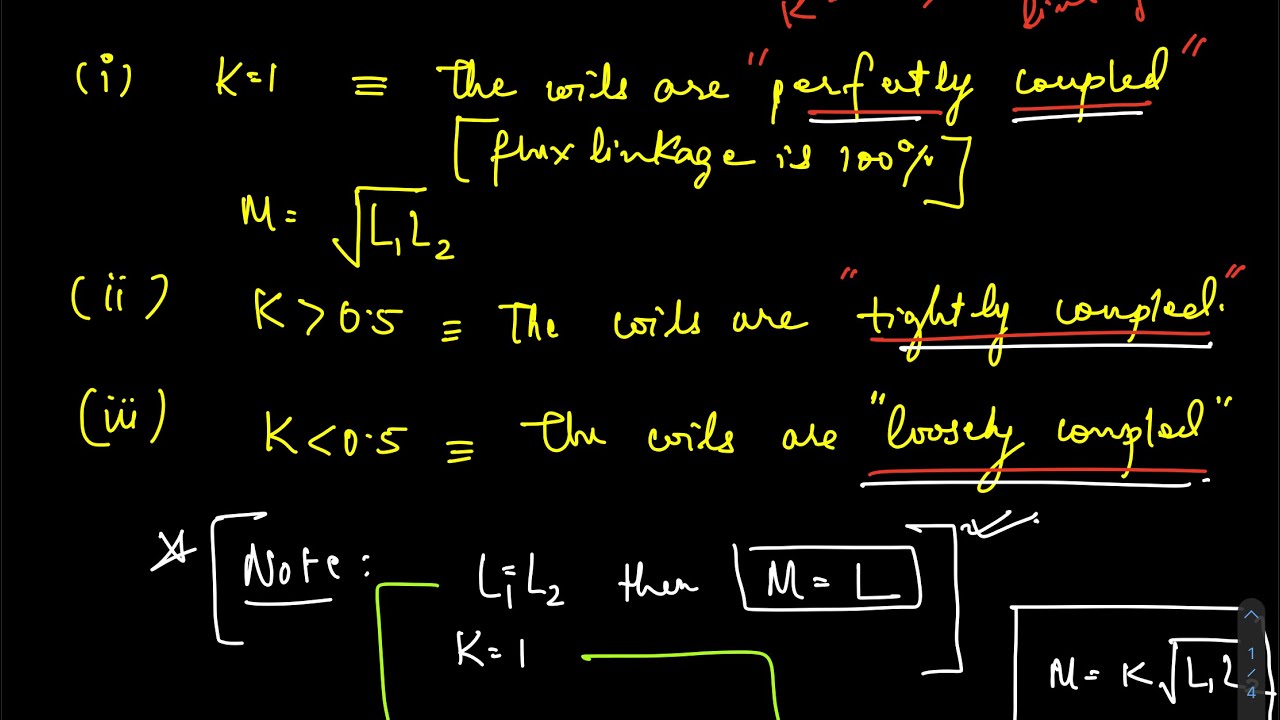 (i) K=1 ≡ The coils are "perfectly coupled"
[flux linkage is 100%]
M = √L₁L₂
(ii) K > 0.5 ≡ The coils are "tightly coupled."
(iii) K < 0.5 ≡ The coils are "loosely coupled"
[Note: L₁=L₂ then M = L]
K=1
M = K√L₁L₂
1/4